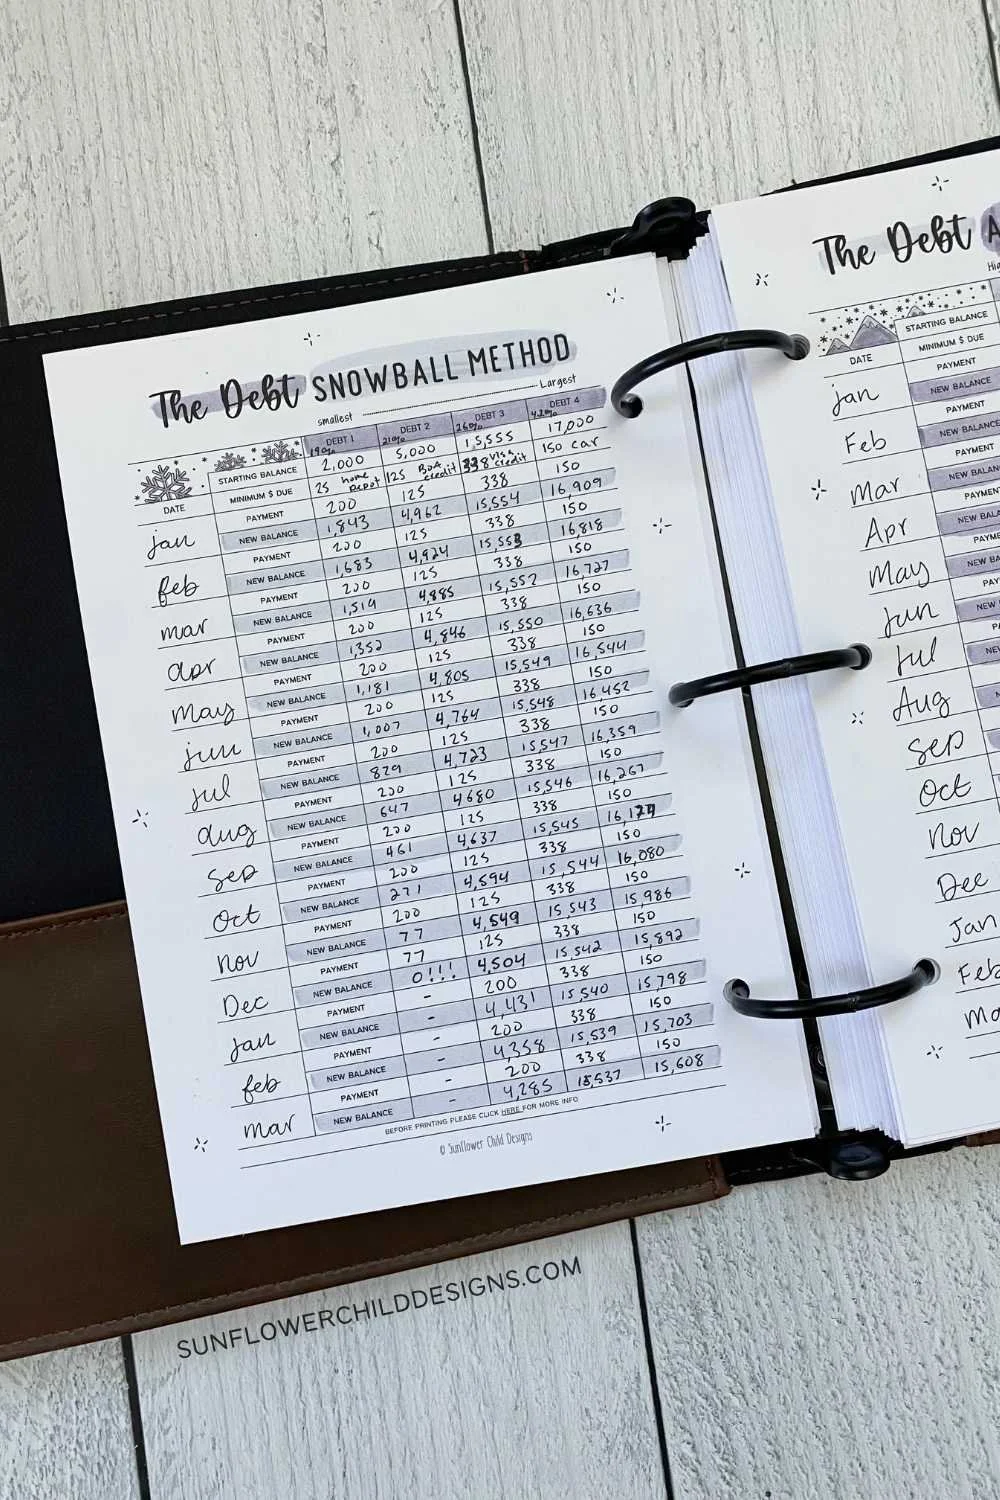 The Debt SNOWBALL METHOD
smallest Largest
DEBT 1 DEBT 2 DEBT 3 DEBT 4
19% 21% 26% 4.2%
STARTING BALANCE 2,000 5,000 15,555 17,000
MINIMUM $ DUE 25 home depot 125 BOA credit 338 visa credit 150 car
DATE
jan PAYMENT 200 125 338 150
NEW BALANCE 1,843 4,962 15,554 16,909
feb PAYMENT 200 125 338 150
NEW BALANCE 1,683 4,924 15,553 16,818
mar PAYMENT 200 125 338 150
NEW BALANCE 1,519 4,885 15,552 16,727
apr PAYMENT 200 125 338 150
NEW BALANCE 1,352 4,846 15,550 16,636
may PAYMENT 200 125 338 150
NEW BALANCE 1,181 4,805 15,549 16,544
jun PAYMENT 200 125 338 150
NEW BALANCE 1,007 4,764 15,548 16,452
jul PAYMENT 200 125 338 150
NEW BALANCE 829 4,723 15,547 16,359
aug PAYMENT 200 125 338 150
NEW BALANCE 647 4680 15,546 16,267
sep PAYMENT 200 125 338 150
NEW BALANCE 461 4,637 15,545 16,174
oct PAYMENT 200 125 338 150
NEW BALANCE 271 4,594 15,544 16,080
nov PAYMENT 200 125 338 150
NEW BALANCE 77 4,549 15,543 15,986
Dec PAYMENT 77 125 338 150
NEW BALANCE 0!!! 4,504 15,542 15,892
jan PAYMENT - 200 338 150
NEW BALANCE - 4,431 15,540 15,798
feb PAYMENT - 200 338 150
NEW BALANCE - 4,358 15,539 15,703
mar PAYMENT - 200 338 150
NEW BALANCE - 4,285 15,537 15,608
BEFORE PRINTING PLEASE CLICK HERE FOR MORE INFO
© Sunflower Child Designs
The Debt A
Hi
STARTING BALANCE
MINIMUM $ DUE
DATE
jan PAYMENT
NEW BALANCE
Feb PAYMENT
NEW BALANCE
Mar PAYMENT
NEW BALANCE
Apr PAYMENT
NEW BALANC
May PAYMEN
NEW BALA
Jun PAYME
NEW BAL
Jul PAYM
NEW BA
Aug PAY
NEW
Sep
Oct
Nov
Dec
Jan
Feb
Ma
SUNFLOWERCHILDDESIGNS.COM